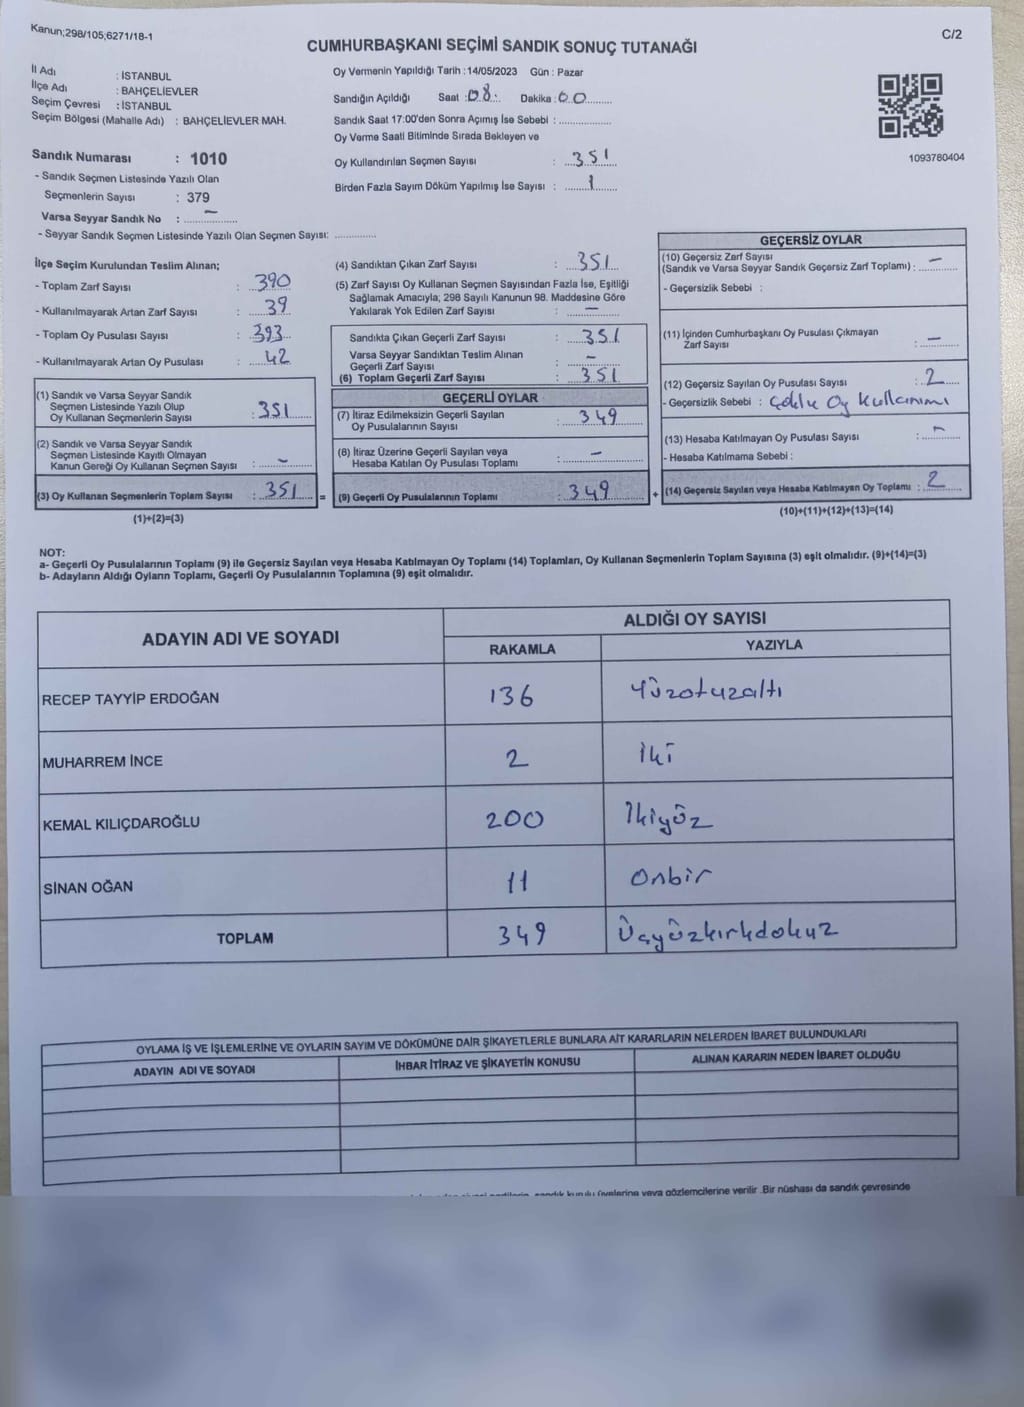 Kanun;298/105;6271/18-1
C/2
CUMHURBAŞKANI SEÇİMİ SANDIK SONUÇ TUTANAĞI
İl Adı : İSTANBUL
İlçe Adı : BAHÇELİEVLER
Seçim Çevresi : İSTANBUL
Seçim Bölgesi (Mahalle Adı) : BAHÇELİEVLER MAH.
Sandık Numarası : 1010
- Sandık Seçmen Listesinde Yazılı Olan
Seçmenlerin Sayısı : 379
Varsa Seyyar Sandık No : –
- Seyyar Sandık Seçmen Listesinde Yazılı Olan Seçmen Sayısı: ..............
Oy Vermenin Yapıldığı Tarih : 14/05/2023 Gün : Pazar
Sandığın Açıldığı Saat : 08. Dakika : 00
Sandık Saat 17:00'den Sonra Açımış İse Sebebi : ................
Oy Verme Saati Bitiminde Sırada Bekleyen ve
Oy Kullandırılan Seçmen Sayısı : 351
Birden Fazla Sayım Döküm Yapılmış İse Sayısı : 1
1093780404
İlçe Seçim Kurulundan Teslim Alınan;
- Toplam Zarf Sayısı : 390
- Kullanılmayarak Artan Zarf Sayısı : 39
- Toplam Oy Pusulası Sayısı : 393
- Kullanılmayarak Artan Oy Pusulası : 42
(1) Sandık ve Varsa Seyyar Sandık
Seçmen Listesinde Yazılı Olup
Oy Kullanan Seçmenlerin Sayısı : 351
(2) Sandık ve Varsa Seyyar Sandık
Seçmen Listesinde Kayıtlı Olmayan
Kanun Gereği Oy Kullanan Seçmen Sayısı : –
(3) Oy Kullanan Seçmenlerin Toplam Sayısı : 351 =
(1)+(2)=(3)
(4) Sandıktan Çıkan Zarf Sayısı : 351
(5) Zarf Sayısı Oy Kullanan Seçmen Sayısından Fazla İse, Eşitliği
Sağlamak Amacıyla; 298 Sayılı Kanunun 98. Maddesine Göre
Yakılarak Yok Edilen Zarf Sayısı : –
Sandıkta Çıkan Geçerli Zarf Sayısı : 351
Varsa Seyyar Sandıktan Teslim Alınan
Geçerli Zarf Sayısı : –
(6) Toplam Geçerli Zarf Sayısı : 351
GEÇERLİ OYLAR
(7) İtiraz Edilmeksizin Geçerli Sayılan
Oy Pusulalarının Sayısı : 349
(8) İtiraz Üzerine Geçerli Sayılan veya
Hesaba Katılan Oy Pusulası Toplamı : –
(9) Geçerli Oy Pusulalarının Toplamı : 349 +
GEÇERSİZ OYLAR
(10) Geçersiz Zarf Sayısı
(Sandık ve Varsa Seyyar Sandık Geçersiz Zarf Toplamı) : –
- Geçersizlik Sebebi :
(11) İçinden Cumhurbaşkanı Oy Pusulası Çıkmayan
Zarf Sayısı : –
(12) Geçersiz Sayılan Oy Pusulası Sayısı : 2
- Geçersizlik Sebebi : Çoklu Oy Kullanımı
(13) Hesaba Katılmayan Oy Pusulası Sayısı : –
- Hesaba Katılmama Sebebi :
(14) Geçersiz Sayılan veya Hesaba Katılmayan Oy Toplamı : 2
(10)+(11)+(12)+(13)=(14)
NOT:
a- Geçerli Oy Pusulalarının Toplamı (9) ile Geçersiz Sayılan veya Hesaba Katılmayan Oy Toplamı (14) Toplamları, Oy Kullanan Seçmenlerin Toplam Sayısına (3) eşit olmalıdır. (9)+(14)=(3)
b- Adayların Aldığı Oyların Toplamı, Geçerli Oy Pusulalarının Toplamına (9) eşit olmalıdır.
ADAYIN ADI VE SOYADI
ALDIĞI OY SAYISI
RAKAMLA YAZIYLA
RECEP TAYYİP ERDOĞAN 136 Yüzotuzaltı
MUHARREM İNCE 2 İki
KEMAL KILIÇDAROĞLU 200 İkiyüz
SİNAN OĞAN 11 Onbir
TOPLAM 349 Üçyüzkırkdokuz
OYLAMA İŞ VE İŞLEMLERİNE VE OYLARIN SAYIM VE DÖKÜMÜNE DAİR ŞİKAYETLERLE BUNLARA AİT KARARLARIN NELERDEN İBARET BULUNDUKLARI
ADAYIN ADI VE SOYADI İHBAR İTİRAZ VE ŞİKAYETİN KONUSU ALINAN KARARIN NEDEN İBARET OLDUĞU
sandık kurulu üyelerine veya gözlemcilerine verilir .Bir nüshası da sandık çevresinde